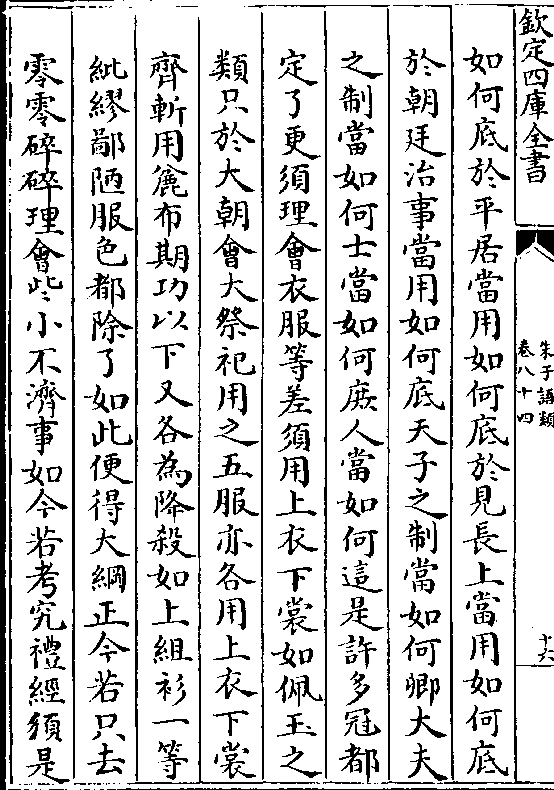 欽定四庫全書
朱子語類
卷八十四
十六
如何底於平居當用如何底於見長上當用如何底
於朝廷治事當用如何底天子之制當如何卿大夫
之制當如何士當如何庶人當如何這是許多冠都
定了更須理會衣服等差須用上衣下裳如佩玉之
類只於大朝會大祭祀用之五服亦各用上衣下裳
齊斬用麄布期功以下又各為降殺如上組衫一等
紕繆鄙陋服色都除了如此便得大綱正今若只去
零零碎碎理會些小不濟事如今若考究禮經須是